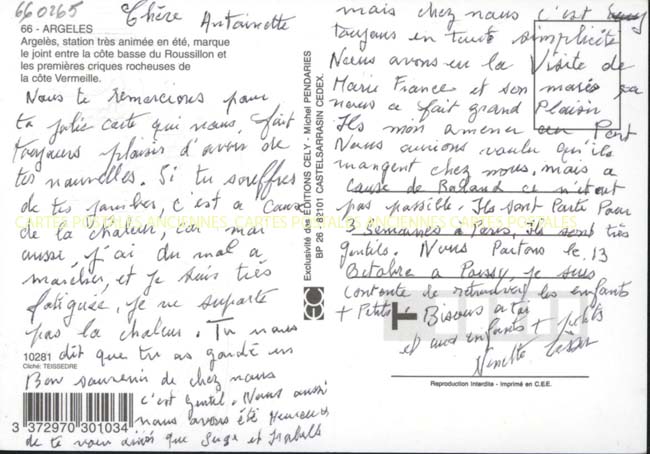 660265
Chère Antoinette
66 - ARGELES
Argelès, station très animée en été, marque
le joint entre la côte basse du Roussillon et
les premières criques rocheuses de
la côte Vermeille.
Nous te remercions pour
ta jolie carte qui nous fait
toujours plaisir d'avoir de
tes nouvelles. Si tu souffres
de tes jambes, c'est a cause
de la chaleur, car moi
aussi, j'ai du mal a
marcher, et je suis très
fatiguée, je ne suporte
pas la chaleur. Tu nous
dit que tu as gardé un
Bon souvenir de chez nous
c'est gentil. Nous aussi
nous avons été Heureux
de te voir ainsi que Suze et Isabelle
10281
Cliché: TEISSEDRE
3 372970 301034
Exclusivité des ÉDITIONS CELY - Michel PENDARIES
BP 26 - 82101 CASTELSARRASIN CEDEX.
mais chez nous c'est
toujours en toute simplicité
Nous avons eu la Visite de
Marie France et son mari, ça
nous a fait grand Plaisir
Ils m'on amener au Port
Nous aurions voulu qu'ils
mangent chez nous, mais a
cause de Roland ce n'était
pas possible. Ils sont Parti Pour
3 semaines a Paris, ils sont très
gentils. Nous Partons le 13
Octobre a Poissy, je suis
contente de retrouver les enfants
+ Petits Bisous a toi
et aux enfants + petits
Ninette
Reproduction Interdite - Imprimé en C.E.E.
CARTES POSTALES ANCIENNES CARTES POSTALES ANCIENNES CARTES POSTALES